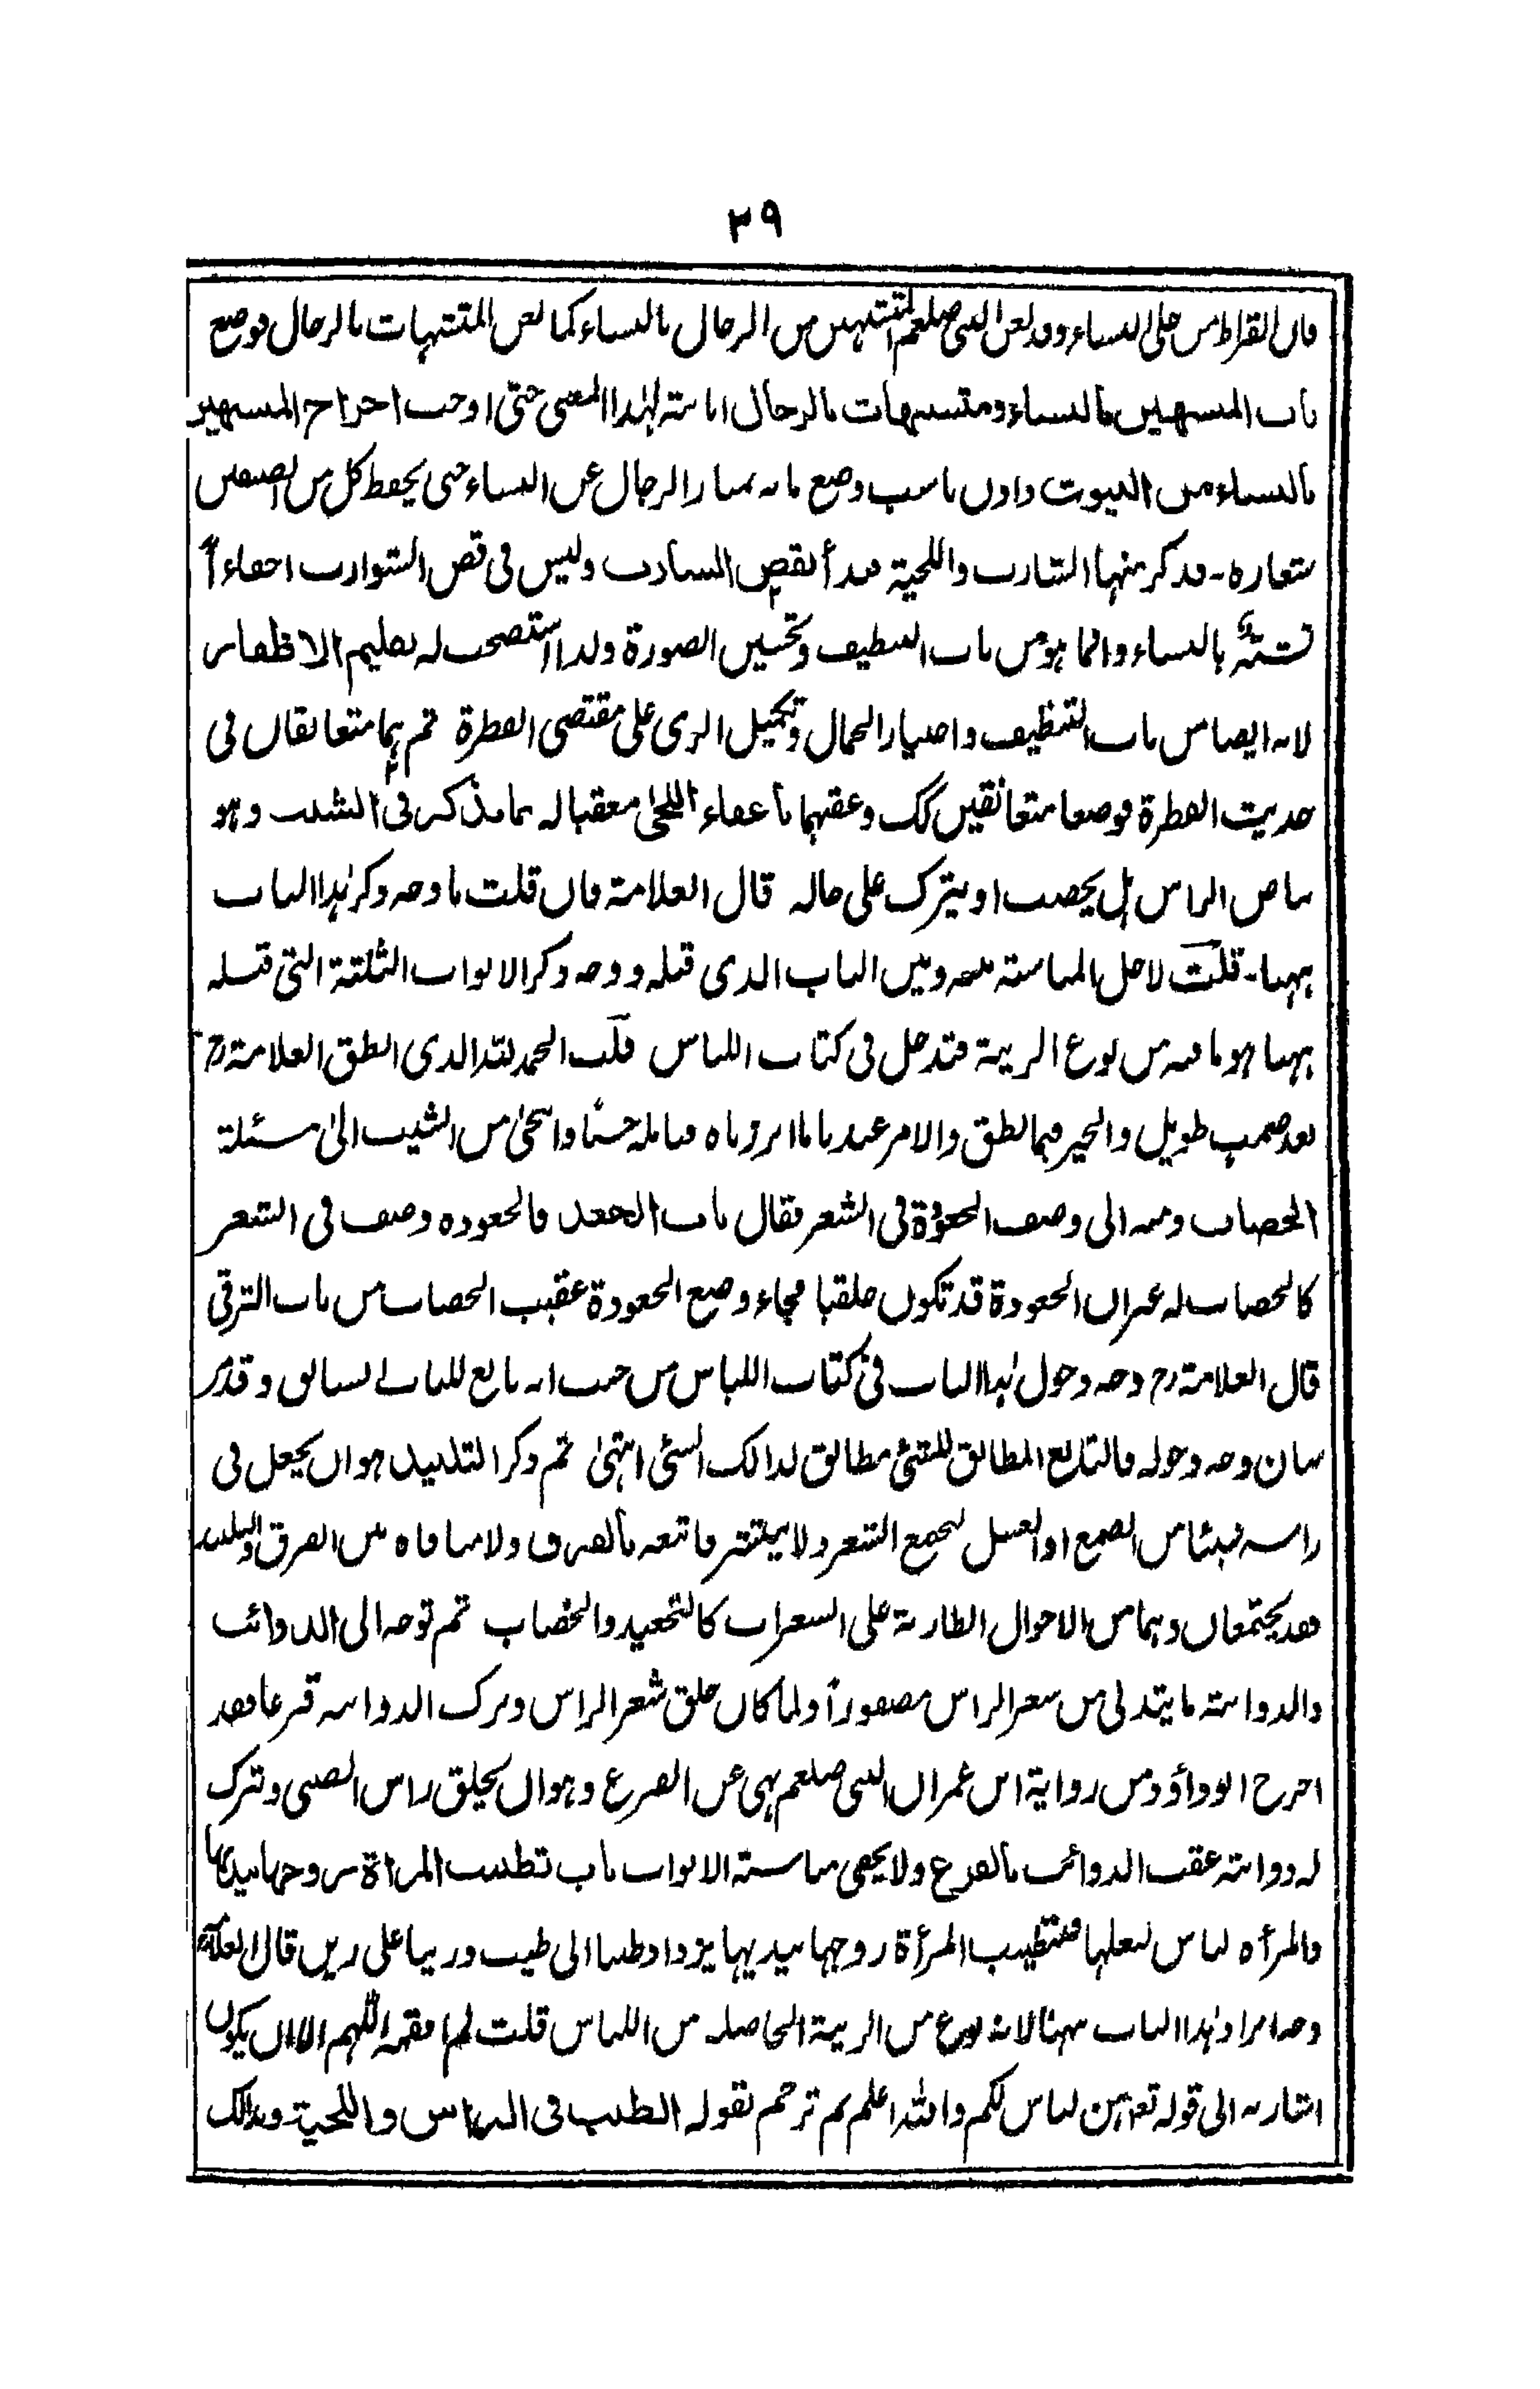 ٣٩
فان القراط من حلى النساء وقد لعن النبى صلعم المتشبهين من الرجال بالنساء كما لعن المتشبهات بالرجال فوضع
باب المتشبهين بالنساء ومتشبهات بالرجال اما شبه لهذا المعنى حتى اوجب اخراج المتشبهين
بالنساء من البيوت واذن ناسب وضع ما به يمتاز الرجال عن النساء حتى يحفظ كل من الصنفين
شعاره - فذكر منها الشارب واللحية فبدأ بقص الشارب وليس فى قص الشوارب احفاءاً
تشبه بالنساء وانما هو من باب التنظيف وتحسين الصورة ولذا استصحب له تقليم الاظفار
لانه ايضا من باب التنظيف واختيار الجمال وتكميل الزى على مقتضى الفطرة ثم هما متعانقان فى
حديث الفطرة فوضعا متعانقين كك وعقبهما باعفاء اللحى معقبا له بما يذكر فى الشيب وهو
بياض الراس هل يخضب او يترك على حاله قال العلامة فان قلت ما وجه ذكر هذا الباب
ههنا - قلت لاجل المناسبة بينه وبين الباب الذى قبله ووجه ذكر الابواب الثلثة التى قبله
ههنا هو ما فيه من نوع الزينة فتدخل فى كتاب اللباس قلت الحمد لله الذى انطق العلامة رح
بعد صمت طويل والخير فيما نطق والامر عندنا ما ابرزناه فتامله حسنا وانتحى من الشيب الى مسئلة
الخضاب ومنه الى وصف الجعودة فى الشعر فقال باب الجعد فالجعوده وصف فى الشعر
كالخضاب له غيران الجعودة قد تكون خلقيا فجاء وضع الجعودة عقيب الخضاب من باب الترقى
قال العلامة رح وجه دخول هذا الباب فى كتاب اللباس من حيث انه تابع للباب السابق وقد مر
بيان وجه دخوله فالتابع المطابق للشئ مطابق لذالك الشئ انتهى ثم ذكر التلبيد هو ان يجعل فى
راسه شيئا من الصمغ او العسل ليجمع الشعر ولا ينتشر فاتبعه بالفرق ولا منافاة بين الفرق والتلبيد
فقد يجتمعان وهما من الاحوال الطارية على الشعرات كالتجعيد والخضاب ثم توجه الى الذوائب
والذوابة ما يتدلى من شعر الراس مضفوراً ولما كان حلق شعر الراس وترك الذوابة قزعا فقد
اخرج ابوداؤد من رواية ابن عمر ان النبى صلعم نهى عن القزع وهو ان يحلق راس الصبى وتترك
له ذوابة عقب الذوائب بالقزع ولا يخفى مناسبة الابواب باب تطييب المراة زوجها بيديها
والمرأه لباس لبعلها فتطييب المرأة زوجها بيديها يزداد طيبا الى طيب وزينا على زين قال العلامة
وجه ايراد هذا الباب ههنا لانه نوع من الزينة الحاصلة من اللباس قلت لم افقهه اللهم الا ان يكون
اشار به الى قوله تعالى هن لباس لكم والله اعلم ثم ترجم بقوله الطيب فى الراس واللحية وذالك